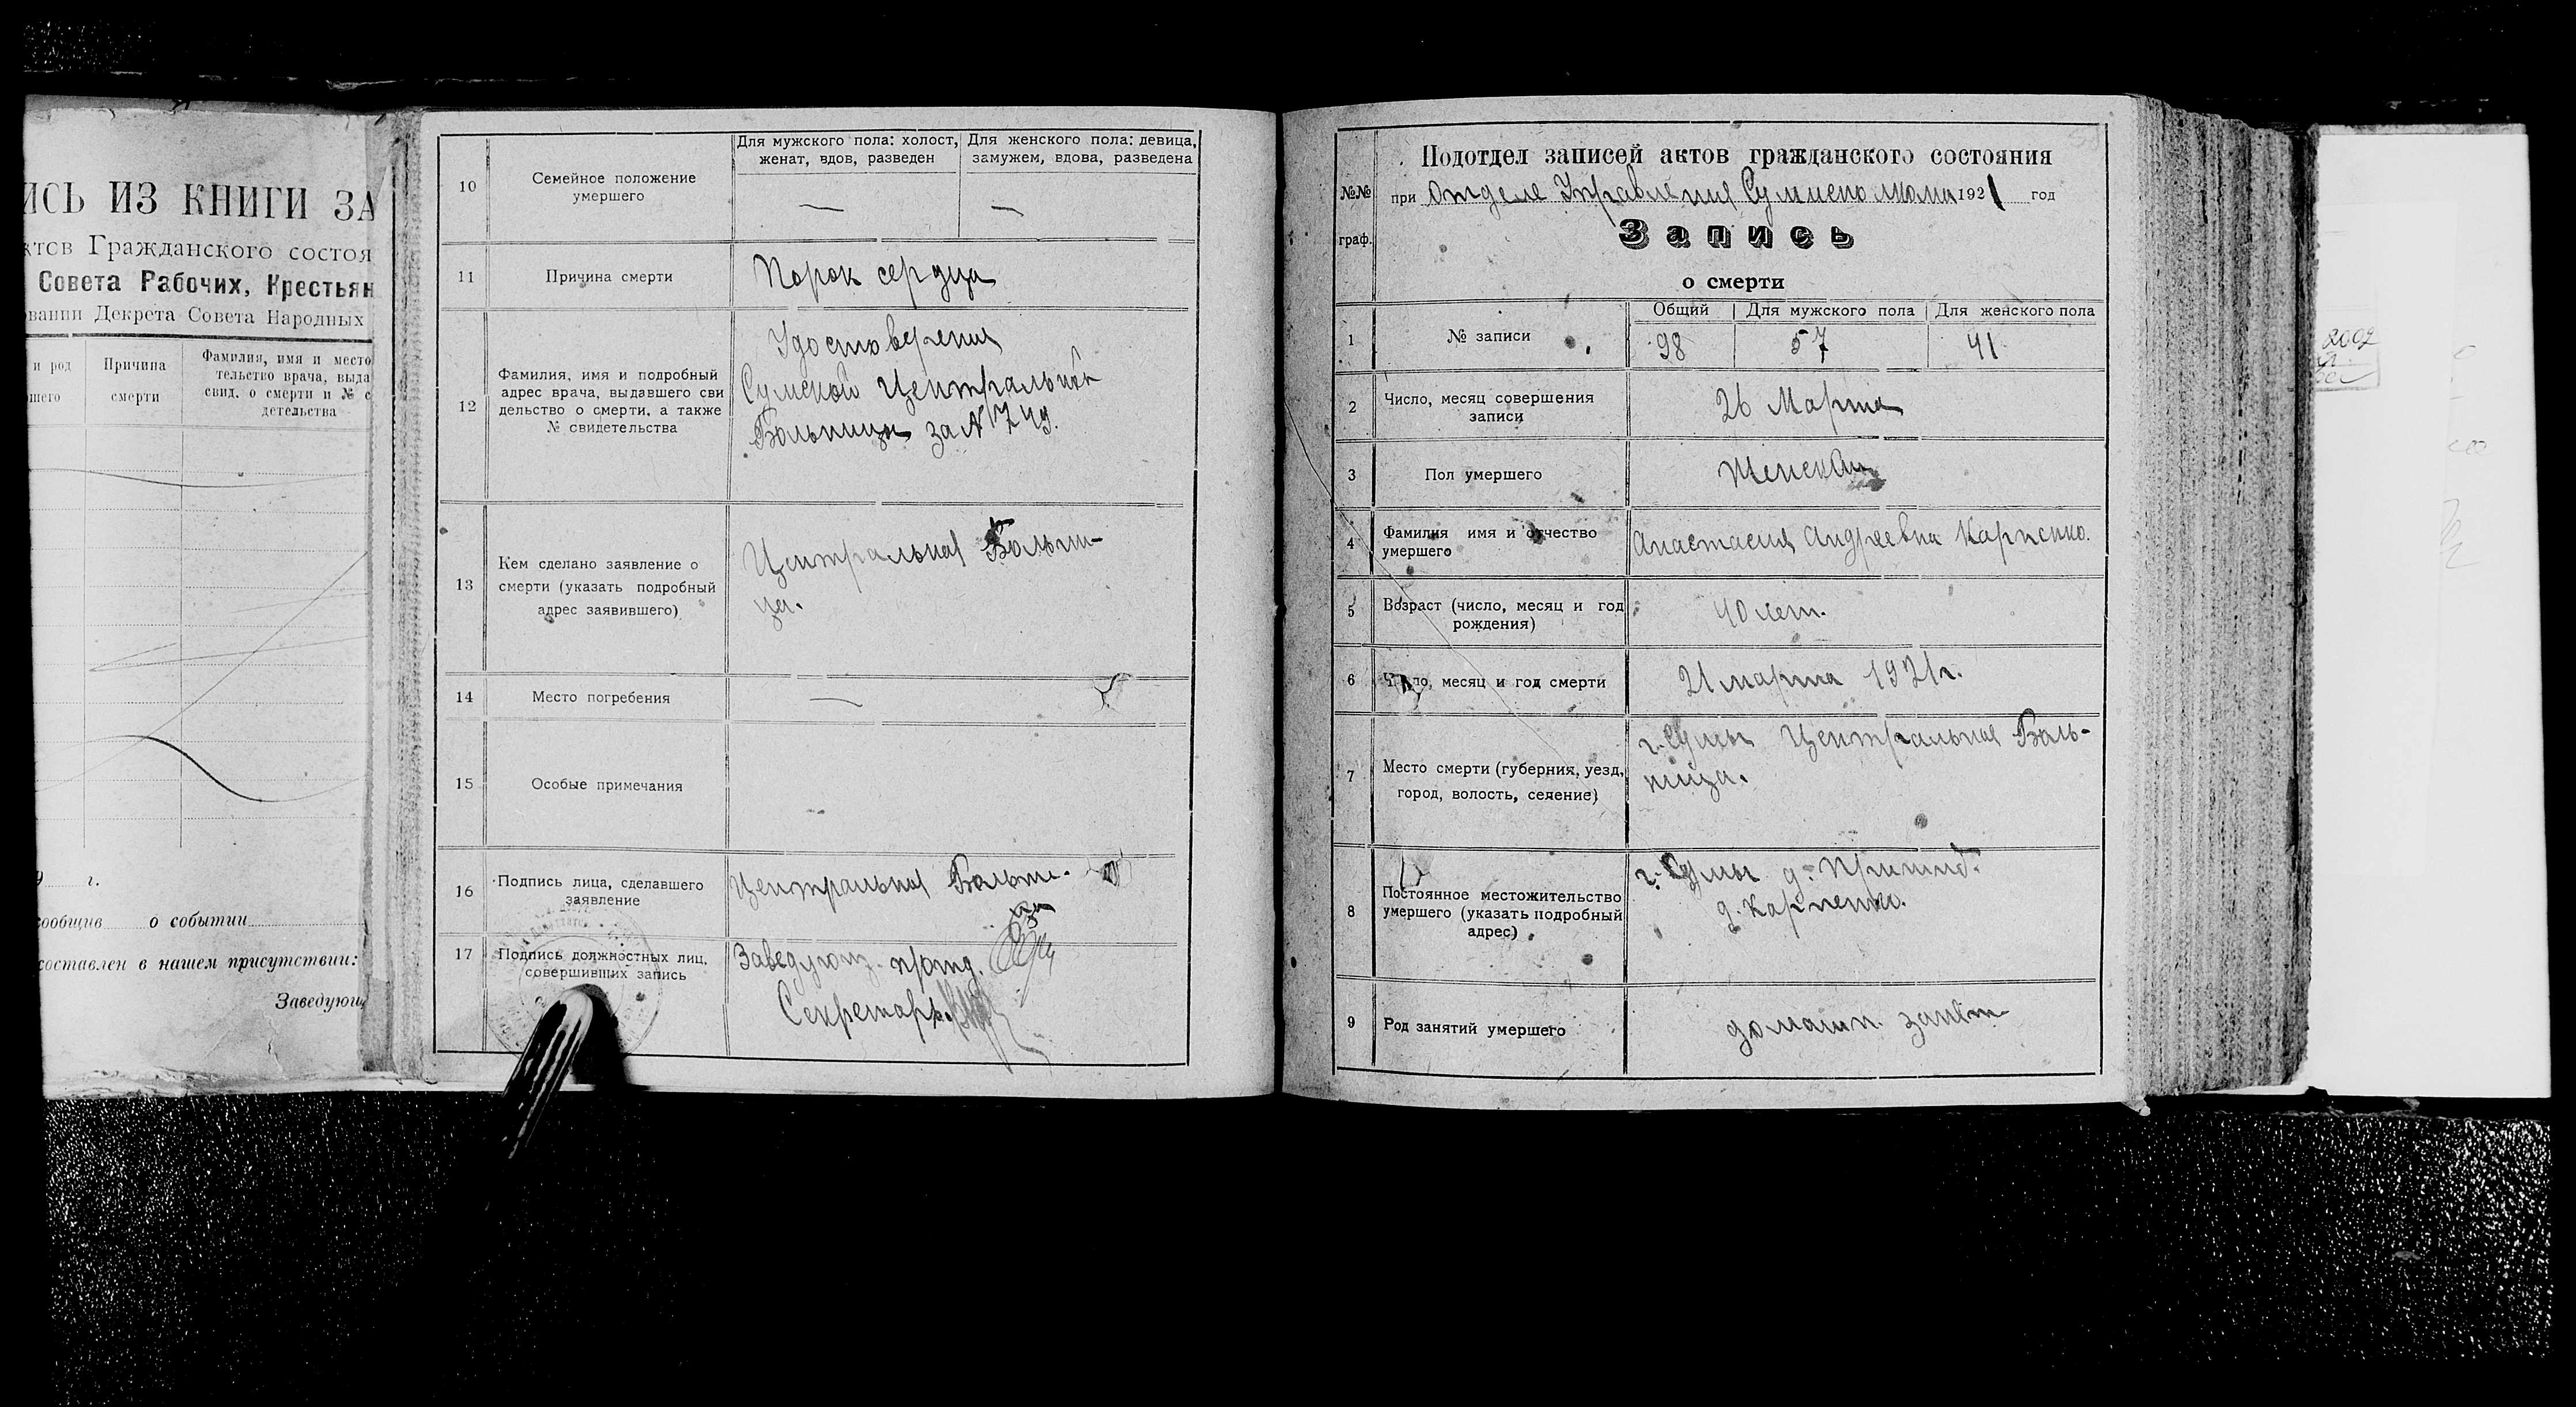 ИСЬ ИЗ КНИГИ ЗА
ктов Гражданского состоя
Совета Рабочих, Крестьян
овании Декрета Совета Народных
и род
шего
Причина
смерти
Фамилия, имя и место
тельство врача, выда
свид. о смерти и № с
детельства
г.
сообщив о событии
составлен в нашем присутствии:
Заведующ
10
Семейное положение
умершего
Для мужского пола: холост,
женат, вдов, разведен
Для женского пола: девица,
замужем, вдова, разведена
—
—
11
Причина смерти
Порок сердца
12
Фамилия, имя и подробный
адрес врача, выдавшего сви
дельство о смерти, а также
№ свидетельства
Удостоверения
Сумской Центральной
Больницы за № 749.
13
Кем сделано заявление о
смерти (указать подробный
адрес заявившего)
Центральная Больни-
ца.
14
Место погребения
—
15
Особые примечания
16
Подпись лица, сделавшего
заявление
Центральная Больни.
17
Подпись должностных лиц,
совершивших запись
Заведующ. п/отд.
Секретарь
№№
граф.
Подотдел записей актов гражданского состояния
при Отделе Управления 1921 год
Запись
о смерти
1
№ записи
Общий
Для мужского пола
Для женского пола
98
57
41
2
Число, месяц совершения
записи
26 Марта
3
Пол умершего
Женский
4
Фамилия имя и отчество
умершего
Анастасия Андреевна Карпенко.
5
Возраст (число, месяц и год
рождения)
40 лет.
6
Число, месяц и год смерти
21 марта 1921 г.
7
Место смерти (губерния, уезд,
город, волость, селение)
г. Сумы Центральная Боль-
ница.
8
Постоянное местожительство
умершего (указать подробный
адрес)
г. Сумы
д. Карпенко.
9
Род занятий умершего
домашн. занят
2002